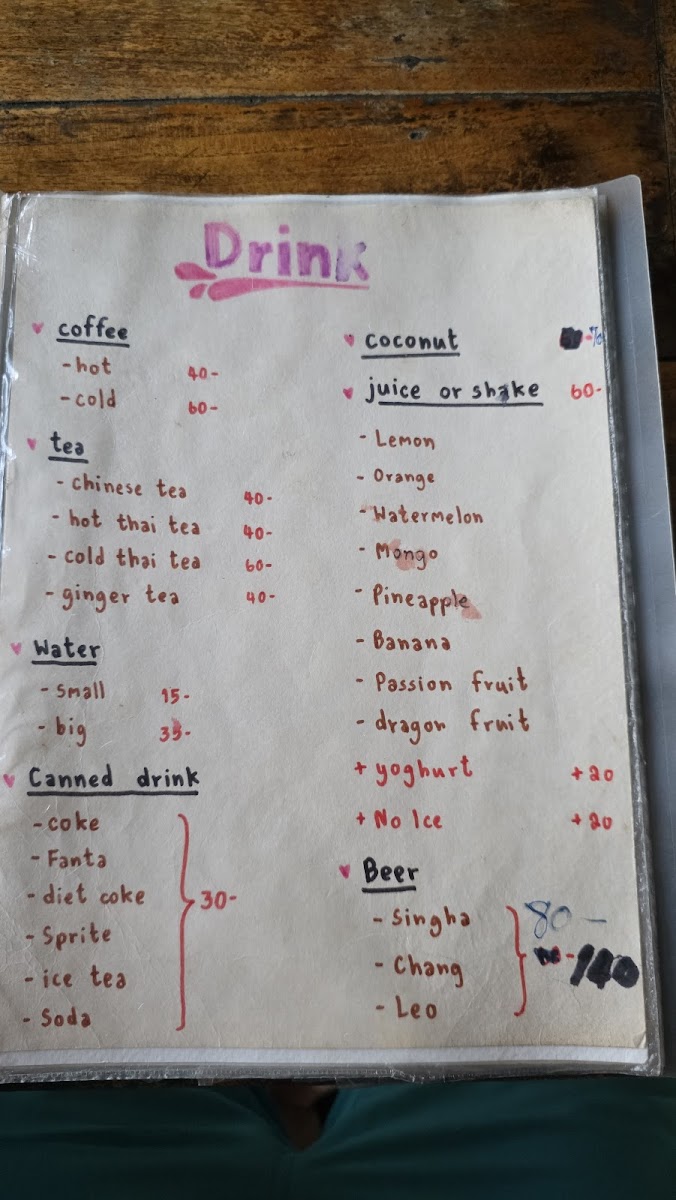 Drink
coffee
- hot 40-
- cold 60-
tea
- chinese tea 40-
- hot thai tea 40-
- cold thai tea 60-
- ginger tea 40-
Water
- small 15-
- big 35-
Canned drink
- coke
- Fanta
- diet coke
- Sprite
- ice tea
- Soda
30-
coconut
juice or shake 60-
- Lemon
- Orange
- Watermelon
- Mongo
- Pineapple
- Banana
- Passion fruit
- dragon fruit
+ yoghurt +20
+ No Ice +20
Beer
- Singha
- Chang
- Leo
80-
140